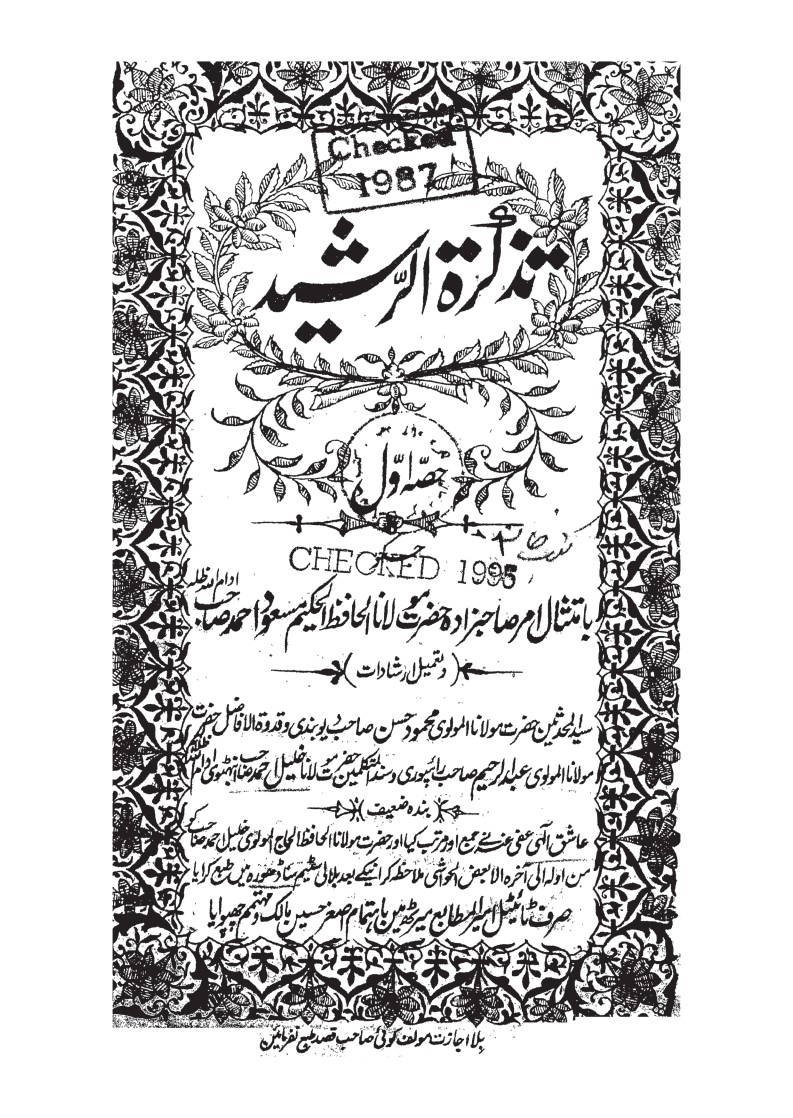 Checked
1987
تذکرۃ الرشید
حصہ اوّل
CHECKED 1995
بامتثال امر صاحبزادہ حضرت مولانا الحافظ الحکیم مسعود احمد صاحب ادام اللہ ظلہ
(وتعمیل ارشادات)
سید المحدثین حضرت مولانا المولوی محمود حسن صاحب دیوبندی و قدوۃ الافاضل حضرت
مولانا المولوی عبدالرحیم صاحب رائپوری و سند المتکلمین حضرت مولانا خلیل احمد صاحب انبٹھوی ادام اللہ ظلہم
بندہ ضعیف
عاشق الٰہی عفی عنہ نے جمع اور مرتب کیا اور حضرت مولانا الحافظ الحاج المولوی خلیل احمد صاحب کے
من اولہ الی آخرہ الا بعض الحواشی ملاحظہ کرانیکے بعد بلالی سٹیم ساڈھورہ میں طبع کرایا
صرف ٹائیٹل امیر المطابع میرٹھ میں باہتمام اصغر حسین مالک و مہتمم چھپوایا
بلا اجازت مولف کوئی صاحب قصد طبع نفرمائیں